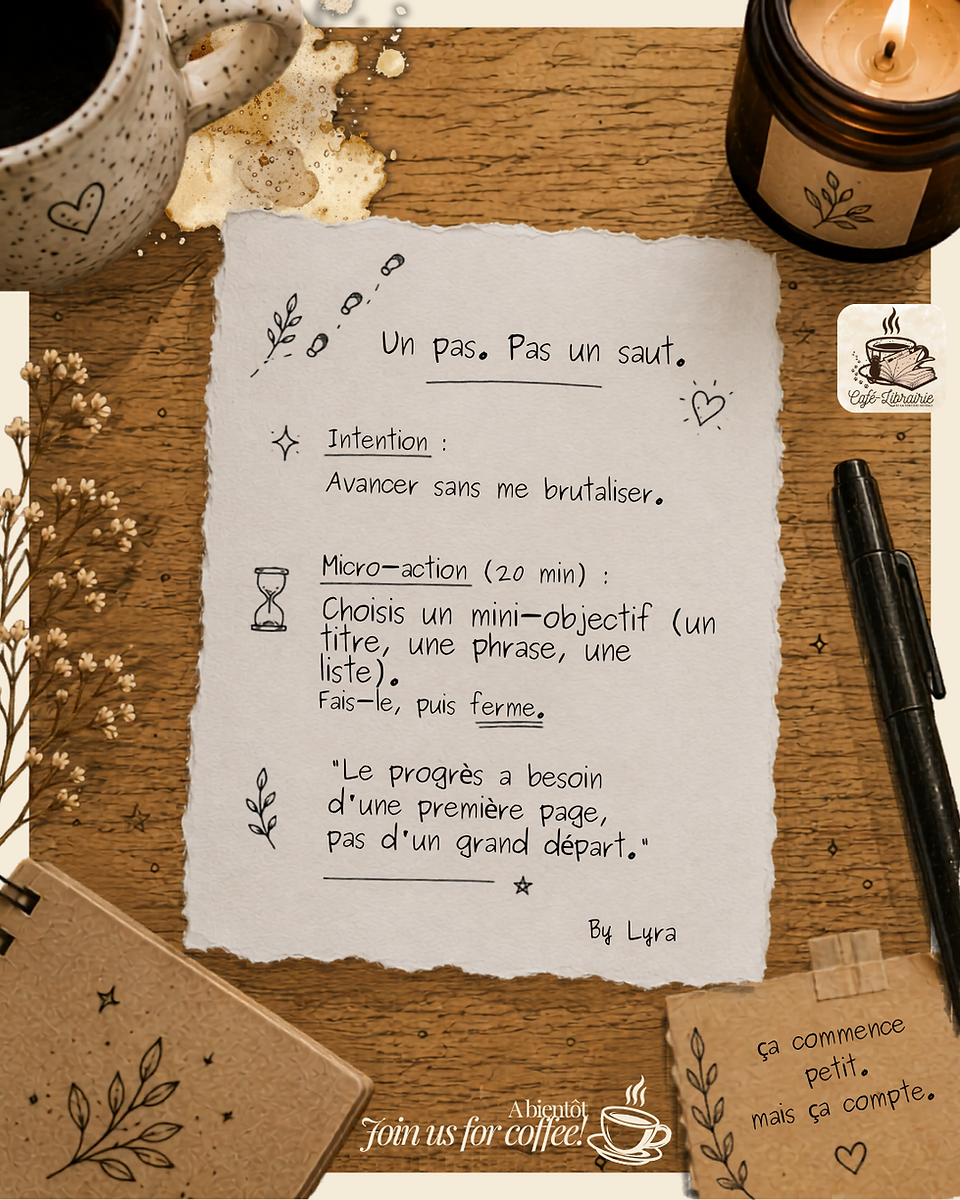 Un pas. Pas un saut.
Café-Librairie
Intention :
Avancer sans me brutaliser.
Micro-action (20 min) :
Choisis un mini-objectif (un
titre, une phrase, une
liste).
Fais-le, puis ferme.
"Le progrès a besoin
d'une première page,
pas d'un grand départ."
By Lyra
ça commence
petit.
mais ça compte.
A bientôt
Join us for coffee!